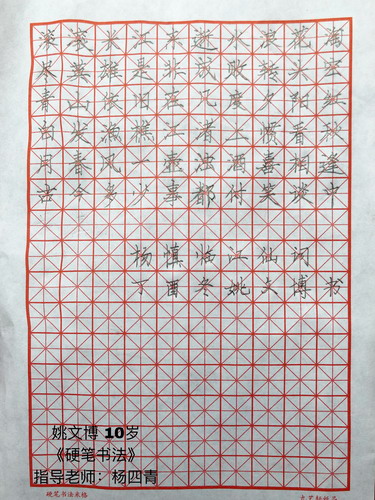 滚滚长江东逝水浪花淘
尽英雄是非成败转头空
青山依旧在几度夕阳红
白发渔樵江渚上惯看秋
月春风一壶浊酒喜相逢
古今多少事都付笑谈中
杨慎临江仙词
丁酉冬姚文博书
姚文博 10岁
《硬笔书法》
指导老师：杨四青
硬笔书法米格